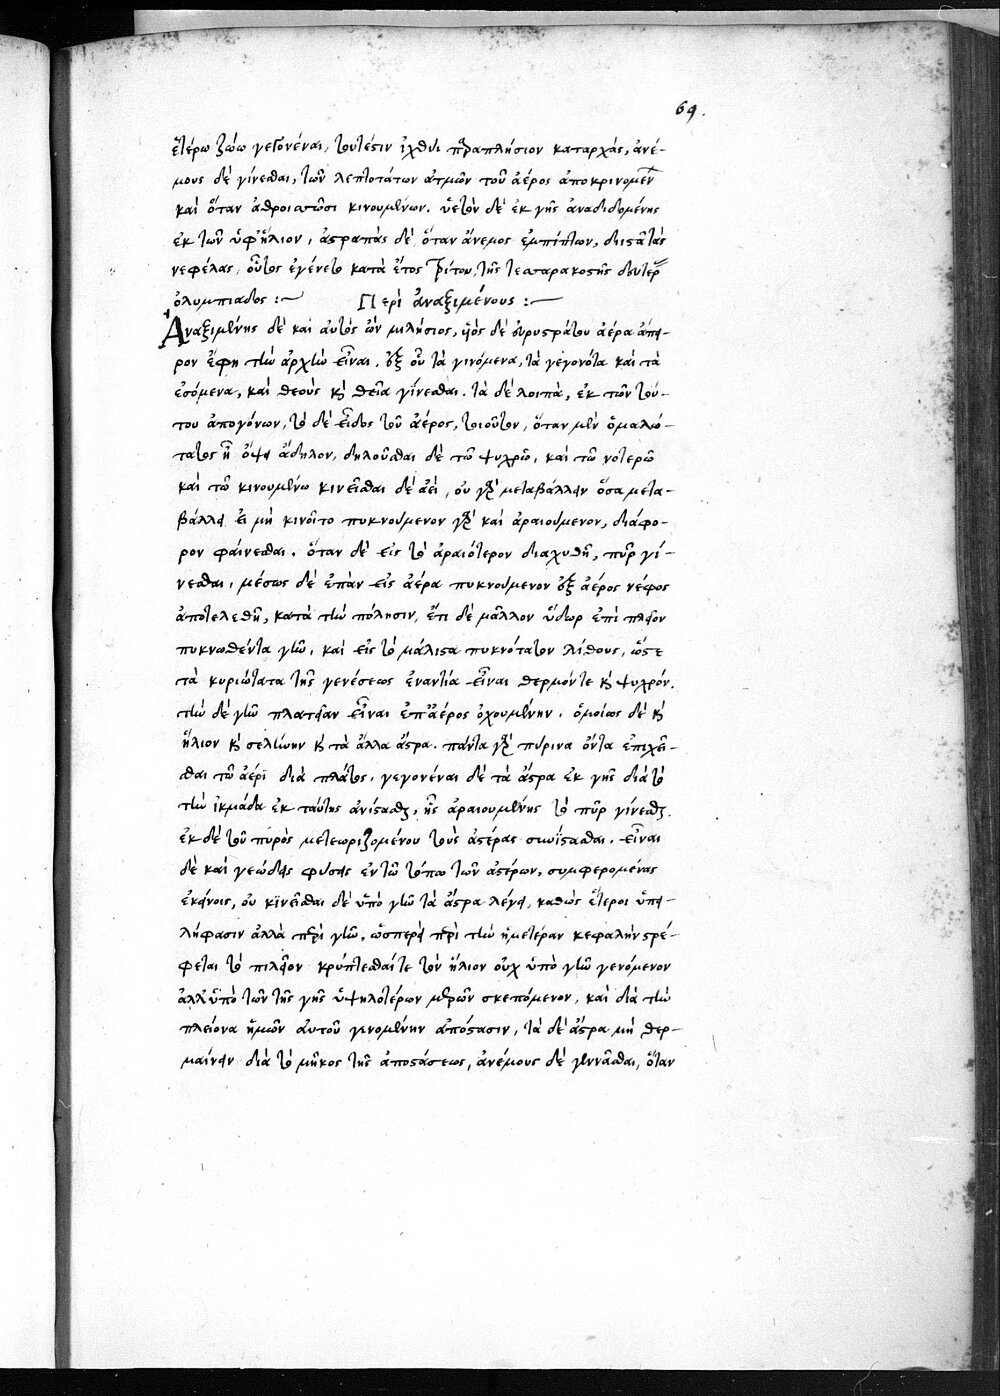 69.
ἑτέρω ζώω γεγονέναι, τουτέστιν ἰχθύι παραπλήσιον καταρχάς, ἀνέ-
μους δὲ γίνεσθαι, τῶν λεπτοτάτων ἀτμῶν τοῦ ἀέρος ἀποκρινομεν
καὶ ὅταν ἀθροισθῶσι κινουμένων. ὑετὸν δὲ ἐκ γῆς ἀναδιδομένης
ἐκ τῶν ὑφ' ἥλιον, ἀστραπὰς δὲ ὅταν ἄνεμος ἐμπίπτων, διιστᾶ τὰς
νεφέλας, οὗτος ἐγένετο κατὰ ἔτος τρίτον, τῆς τεσσαρακοστῆς δευτέρ
ὀλυμπιάδος :~ Περὶ ἀναξιμένους :~
Ἀναξιμένης δὲ καὶ αὐτὸς ὢν μιλήσιος, υἱὸς δὲ εὐρυστράτου ἀέρα ἄπει-
ρον ἔφη τὴν ἀρχὴν εἶναι, ἐξ οὗ τὰ γινόμενα, τὰ γεγονότα καὶ τὰ
ἐσόμενα, καὶ θεοὺς καὶ θεῖα γίνεσθαι. τὰ δὲ λοιπὰ, ἐκ τῶν τού-
του ἀπογόνων, τὸ δὲ εἶδος τοῦ ἀέρος, τοιοῦτον, ὅταν μὲν ὁμαλώ-
τατος ἦ ὄψει ἄδηλον, δηλοῦσθαι δὲ τῶ ψυχρῶ, καὶ τῶ νοτερῶ
καὶ τῶ κινουμένω κινεῖσθαι δὲ ἀεὶ, οὐ γὰρ μεταβάλλειν ὅσα μετα-
βάλλει εἰ μὴ κινοῖτο πυκνούμενον γὰρ καὶ ἀραιούμενον, διάφο-
ρον φαίνεσθαι. ὅταν δὲ εἰς τὸ ἀραιότερον διαχυθῆ, πῦρ γί-
νεσθαι, μέσως δὲ ἐπὰν εἰς ἀέρα πυκνούμενον ἐξ ἀέρος νέφος
ἀποτελεσθῆ, κατὰ τὴν πόλησιν, ἔτι δὲ μᾶλλον ὕδωρ ἐπὶ πλεῖον
πυκνωθέντα γῆν, καὶ εἰς τὸ μάλιστα πυκνότατον λίθους, ὥστε
τὰ κυριώτατα τῆς γενέσεως ἐναντία εἶναι θερμόν τε καὶ ψυχρόν.
τὴν δὲ γῆν πλατεῖαν εἶναι ἐπ' ἀέρος ὀχουμένην. ὁμοίως δὲ καὶ
ἥλιον καὶ σελήνην καὶ τὰ ἄλλα ἄστρα. πάντα γὰρ πύρινα ὄντα ἐποχεῖ-
σθαι τῶ ἀέρι διὰ πλάτος. γεγονέναι δὲ τὰ ἄστρα ἐκ γῆς διὰ τὸ
τὴν ἰκμάδα ἐκ ταύτης ἀνίστασθαι, ἧς ἀραιουμένης τὸ πῦρ γίνεσθαι.
ἐκ δὲ τοῦ πυρὸς μετεωριζομένου τοὺς ἀστέρας συνίστασθαι. εἶναι
δὲ καὶ γεώδεις φύσεις ἐν τῶ τόπω τῶν ἀστέρων, συμφερομένας
ἐκείνοις, οὐ κινεῖσθαι δὲ ὑπὸ γῆν τὰ ἄστρα λέγει, καθὼς ἕτεροι ὑπει-
λήφασιν ἀλλὰ περὶ γῆν, ὡσπερεὶ περὶ τὴν ἡμετέραν κεφαλὴν στρέ-
φεται τὸ πιλεῖον κρύπτεσθαί τε τὸν ἥλιον οὐχ ὑπὸ γῆν γενόμενον
ἀλλ' ὑπὸ τῶν τῆς γῆς ὑψηλοτέρων μερῶν σκεπόμενον, καὶ διὰ τὴν
πλείονα ἡμῶν αὐτοῦ γινομένην ἀπόστασιν, τὰ δὲ ἄστρα μὴ θερ-
μαίνειν διὰ τὸ μῆκος τῆς ἀποστάσεως, ἀνέμους δὲ γεννᾶσθαι, ὅταν